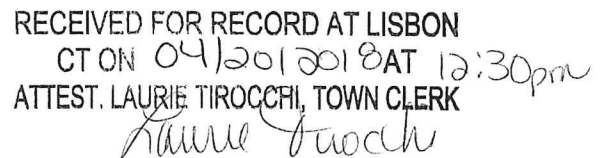 RECEIVED FOR RECORD AT LISBON
CT ON 04/20/2018 AT 12:30pm
ATTEST. LAURIE TIROCCHI, TOWN CLERK
Laurie Tirocchi